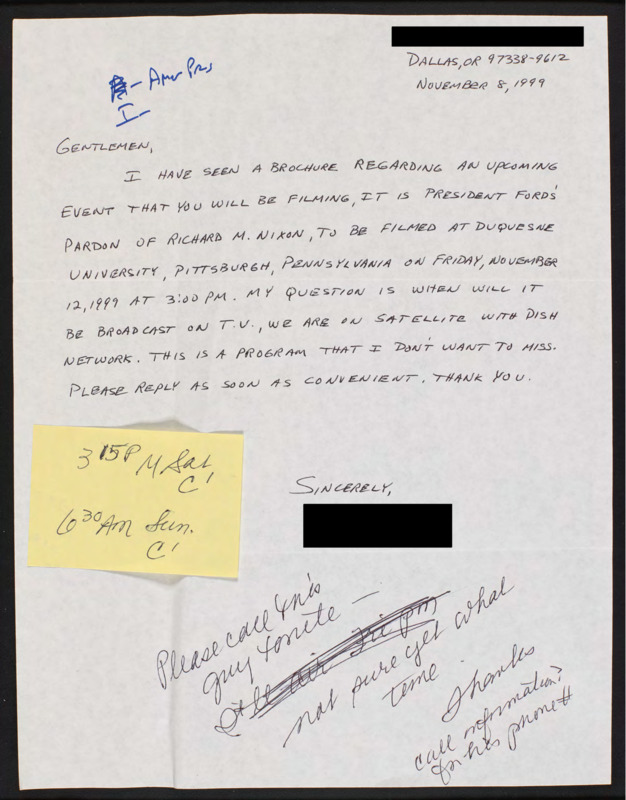 DALLAS, OR 97338-9612
NOVEMBER 8, 1999
- Amer Prs
I-
GENTLEMEN,
I HAVE SEEN A BROCHURE REGARDING AN UPCOMING
EVENT THAT YOU WILL BE FILMING, IT IS PRESIDENT FORD'S
PARDON OF RICHARD M. NIXON, TO BE FILMED AT DUQUESNE
UNIVERSITY, PITTSBURGH, PENNSYLVANIA ON FRIDAY, NOVEMBER
12, 1999 AT 3:00 PM. MY QUESTION IS WHEN WILL IT
BE BROADCAST ON T.V., WE ARE ON SATELLITE WITH DISH
NETWORK. THIS IS A PROGRAM THAT I DON'T WANT TO MISS.
PLEASE REPLY AS SOON AS CONVENIENT. THANK YOU.
3 15 P M Sat
C1
6 30 AM Sun.
C1
SINCERELY,
Please call this
guy tonite —
not sure yet what
time.
Thanks
call information?
for his phone #